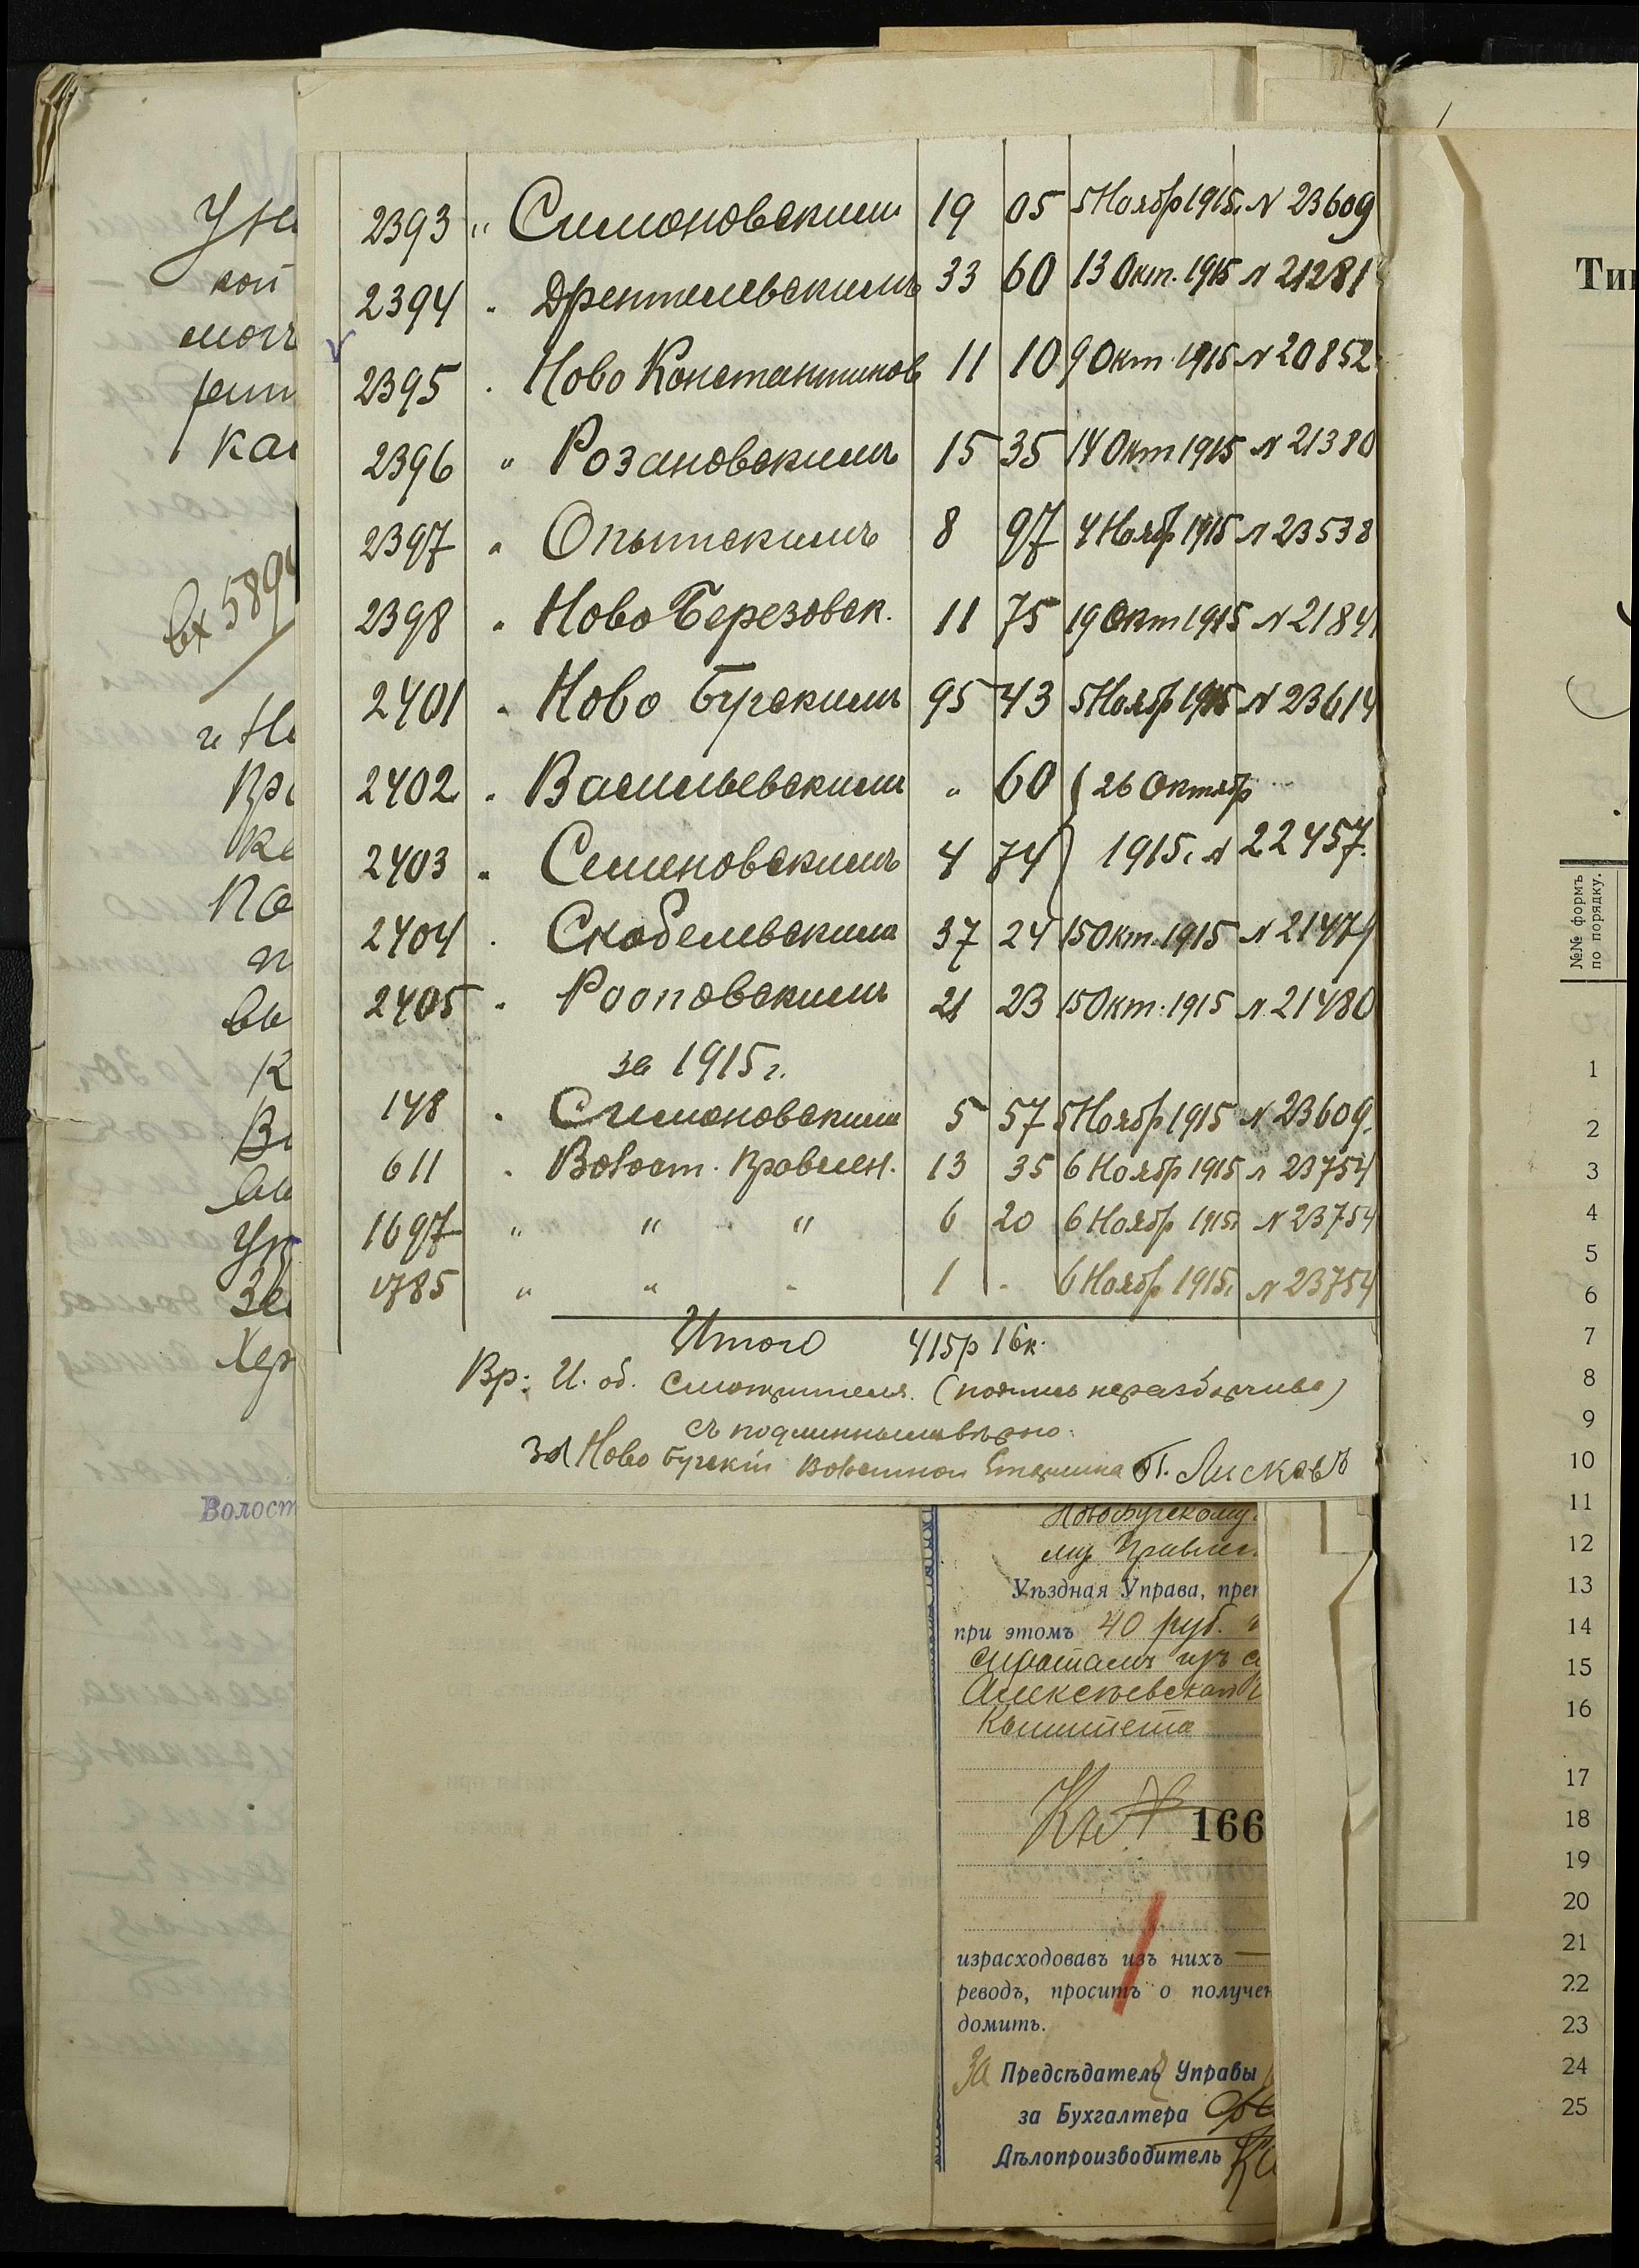 2393 " Симоновскимъ 19 05 5 Ноябр 1915г. N 23609
2394 " Дрентелевскимъ 33 60 13 Окт. 1915 N 21281
2395 " Ново Константинов 11 10 9 Окт. 1915 N 20852
2396 " Розановскимъ 15 35 14 Окт 1915 N 21380
2397 " Опытскимъ 8 97 4 Ноябр 1915 N 23538
2398 " Ново Березовск. 11 75 19 Окт 1915 N 21841
2401 " Ново Бугскимъ 95 43 5 Ноябр 1915 N 23614
2402 " Васильевскимъ " 60 ( 26 Октябр
2403 " Семеновскимъ 4 74 ) 1915г. N 22457.
2404 " Скобелевскимъ 37 24 15 Окт. 1915 N 21479
2405 " Рооповскимъ 21 23 15 Окт. 1915 N 21480
за 1915 г.
148 " Симоновскимъ 5 57 5 Ноябр 1915 N 23609.
611 " Волост. Правлен. 13 35 6 Ноябр 1915 N 23754
1697 " " " 6 20 6 Ноябр 1915г N 23754
1785 " " " 1 - 6 Ноябр 1915г. N 23754
Итого 415р 16к.
Вр. И. об. Смотрителя. (подпись неразборчива)
Съ подлиннымъ вѣрно:
За Ново Бугскій Волостной Старшина П. Лысковъ
вх 589
Волост
Новобугскому
му Правлен
Уѣздная Управа, преп
при этомъ 40 руб.
сиротамъ изъ
Алексѣевскаго
Комитета
Къ № 166
израсходовавъ изъ нихъ —
реводъ, проситъ о получен
домить.
За Предсѣдатель Управы
за Бухгалтера
Дѣлопроизводитель
Ти
№№ формъ
по порядку.
1
2
3
4
5
6
7
8
9
10
11
12
13
14
15
16
17
18
19
20
21
22
23
24
25